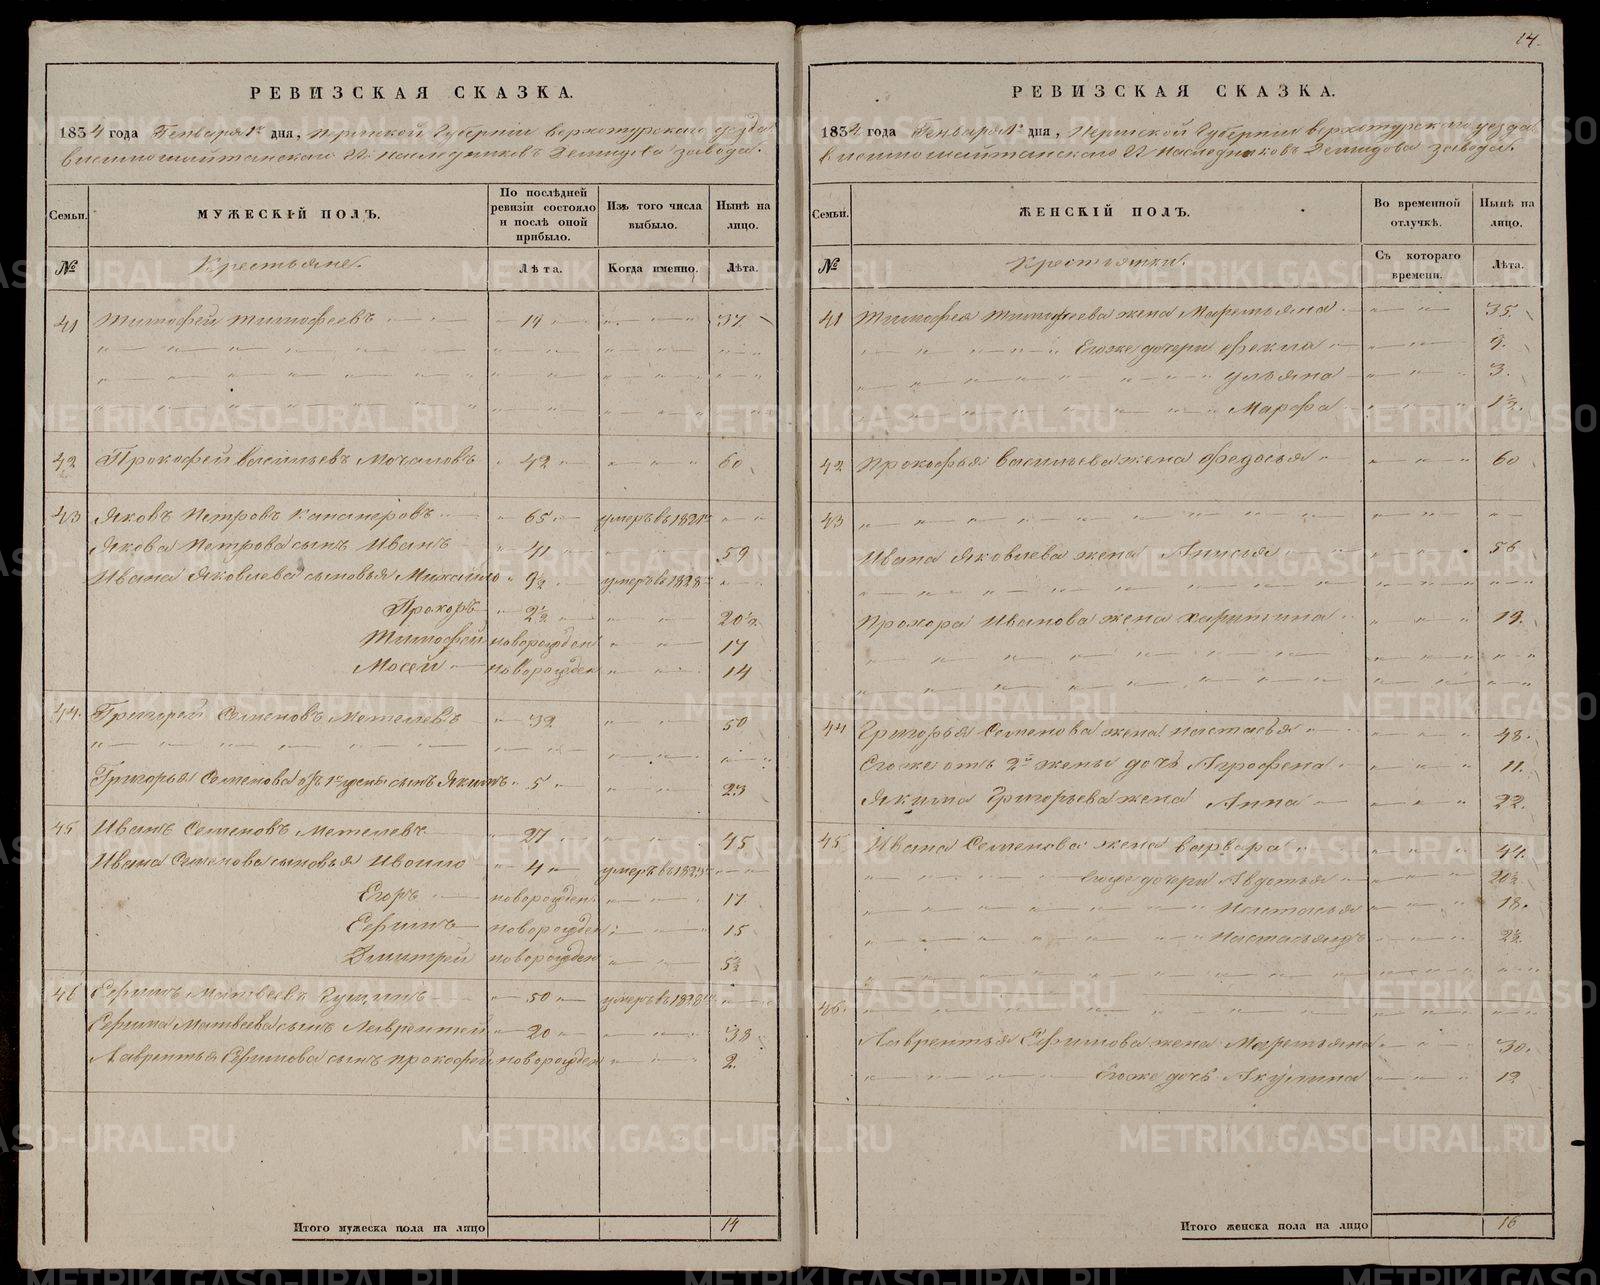 14.
РЕВИЗСКАЯ СКАЗКА.
1834 года Генваря 1го дня, Пермской Губернии Верхотурского уезда
Висимошайтанского Г.г. Наследниковъ Демидова завода.
Семьи. МУЖЕСКІЙ ПОЛЪ. По послѣдней ревизіи состояло и послѣ оной прибыло. Изъ того числа выбыло. Нынѣ на лицо.
№ Крестьяне. Лѣта. Когда именно. Лѣта.
41 Тимофей Тимофеевъ 19 37.
42 Прокофей Васильевъ Мочаловъ 42 60
43 Яковъ Петровъ 65 умеръ въ 1821
Якова Петрова сынъ Иванъ 41 59
Ивана Яковлева сыновья Михайло 9½ умеръ въ 1828
Прохоръ 2½ 20½
Тимофей новорожден 17
Мосей новорожден 14
44. Григорей Семеновъ Метелевъ 32 50
Григорья Семенова отъ 1й жены сынъ Якимъ 5 23
45 Иванъ Семеновъ Метелевъ 27 45
Ивана Семенова сыновья Иваило 4 умеръ въ 1823
Егоръ новорожден 17
Ефимъ новорожден 15
Дмитрей новорожден 5½
46 Ефимъ Матвеевъ Гущинъ 50 умеръ въ 1828
Ефима Матвеева сынъ Лаврентей 20 38
Лаврентья Ефимова сынъ Прокофей новорожден 2.
Итого мужеска пола на лицо 14
РЕВИЗСКАЯ СКАЗКА.
1834 года Генваря 1го дня, Пермской Губернии Верхотурского уезда
Висимошайтанского Г.г. Наследниковъ Демидова завода.
Семьи. ЖЕНСКІЙ ПОЛЪ. Во временной отлучкѣ. Нынѣ на лицо.
№ Крестьянки. Съ котораго времени. Лѣта.
41 Тимофея Тимофеева жена Маремьяна 35.
Егоже дочери Фекла 9.
Ульяна 3.
Марфа 1½.
42 Прокофья Васильева жена Федосья 60
43
Ивана Яковлева жена Анисья 56
Прохора Иванова жена Харитина 19.
44 Григорья Семенова жена Настасья 48.
Егоже отъ 2й жены дочь Агрофена 11.
Якима Григорьева жена Анна 22.
45. Ивана Семенова жена Варвара 44.
Егоже дочери Авдотья 20½
Настасья 18.
2½.
46.
Лаврентья Ефимова жена Маремьяна 30.
Егоже дочь Акулина 12
Итого женска пола на лицо 16
METRIKI.GASO-URAL.RU